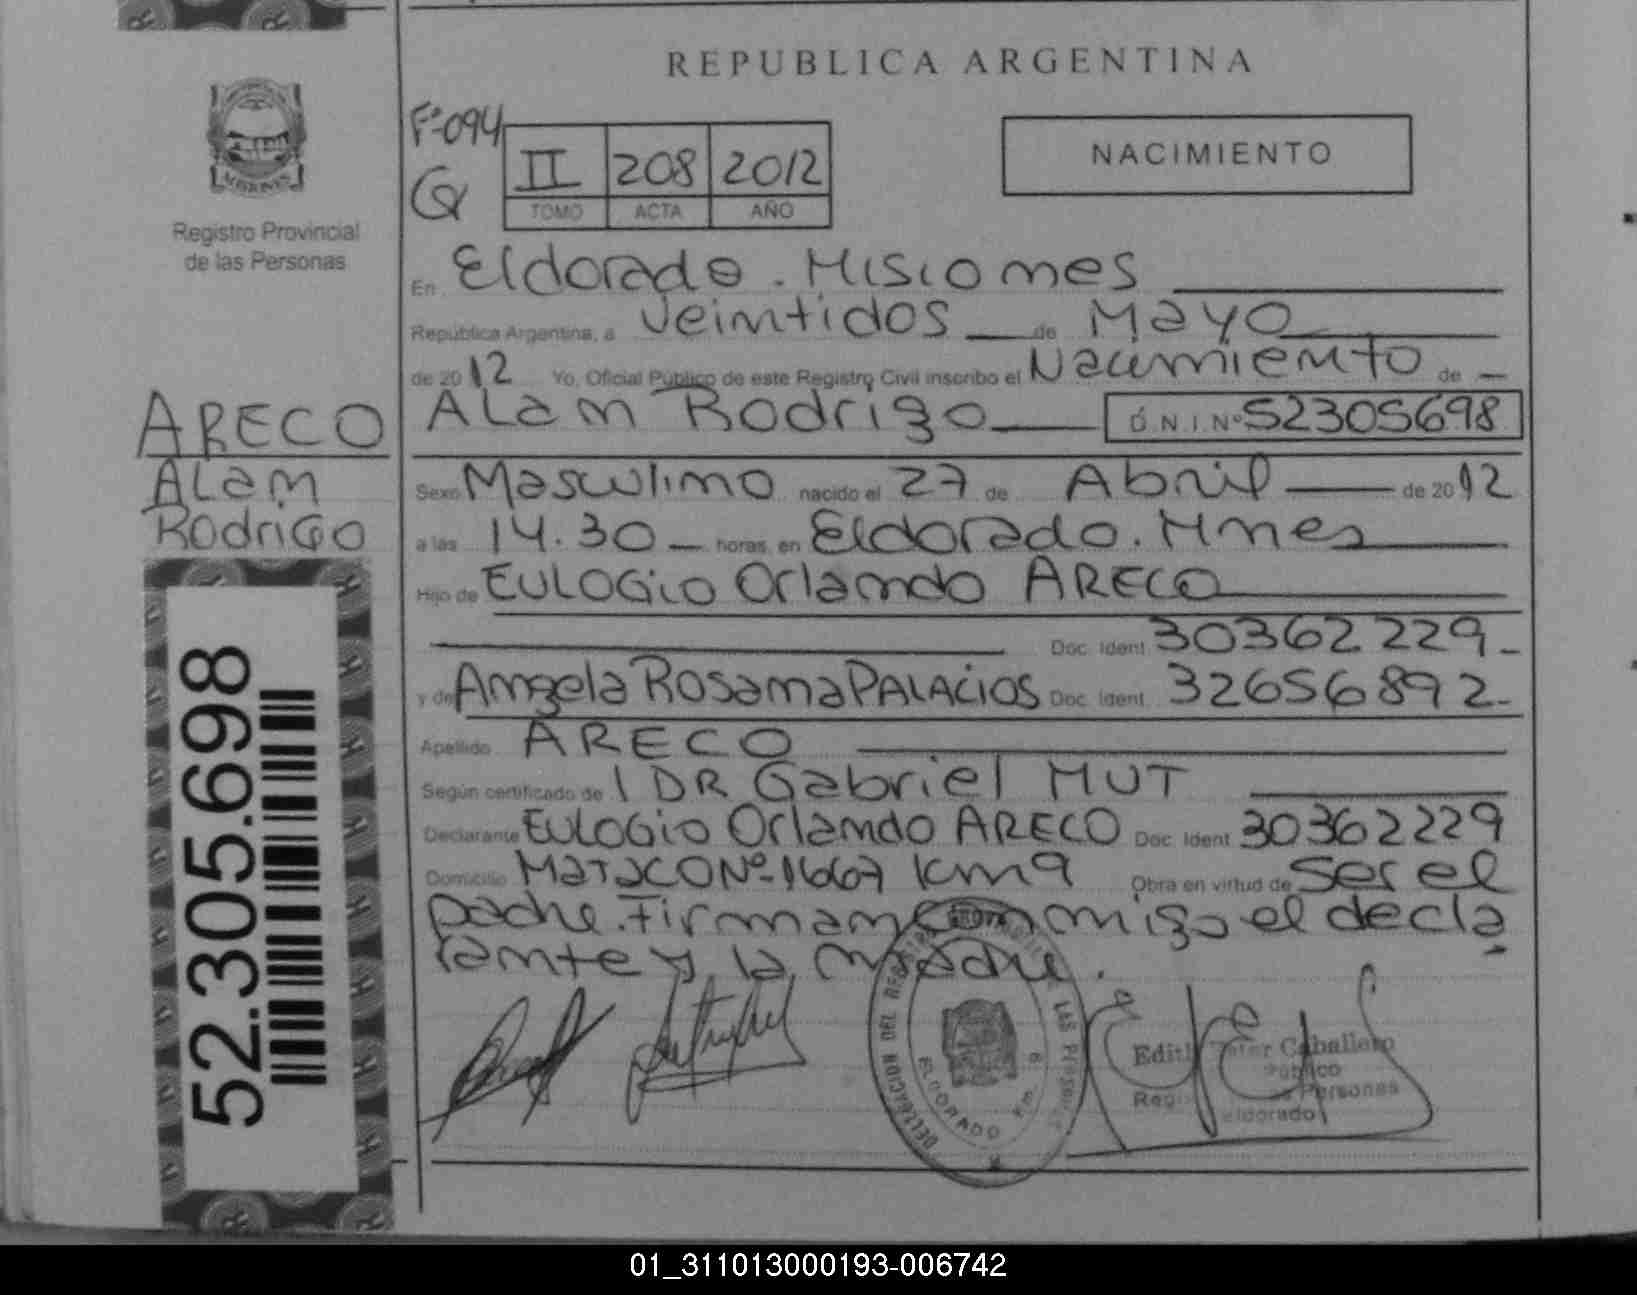 REPUBLICA ARGENTINA
Registro Provincial
de las Personas
Fº 094
II 208 2012
TOMO ACTA AÑO
NACIMIENTO
En Eldorado. Misiones
República Argentina, a Veintidos de Mayo
de 2012 Yo, Oficial Público de este Registro Civil inscribo el Nacimiento de
Alan Rodrigo D.N.I. Nº 52305698
ARECO
Alan
Rodrigo
Sexo Masculino nacido el 27 de Abril de 2012
a las 14.30 horas, en Eldorado. Mnes
Hijo de EULOGIO Orlando ARECO
Doc. Ident. 30362229
y de Angela Rosana PALACIOS Doc. Ident. 32656892
Apellido ARECO
Según certificado de DR Gabriel MUT
Declarante EULOGIO Orlando ARECO Doc. Ident. 30362229
Domicilio MATACO Nº 1667 Km 9 Obra en virtud de Ser el
padre. Firman conmigo el decla
rante y la madre.
52.305.698
DELEGACION DEL REGISTRO LAS PERSONAS
ELDORADO Km. 9
Edith Caballero
Público
Personas
eldorado
01_311013000193-006742